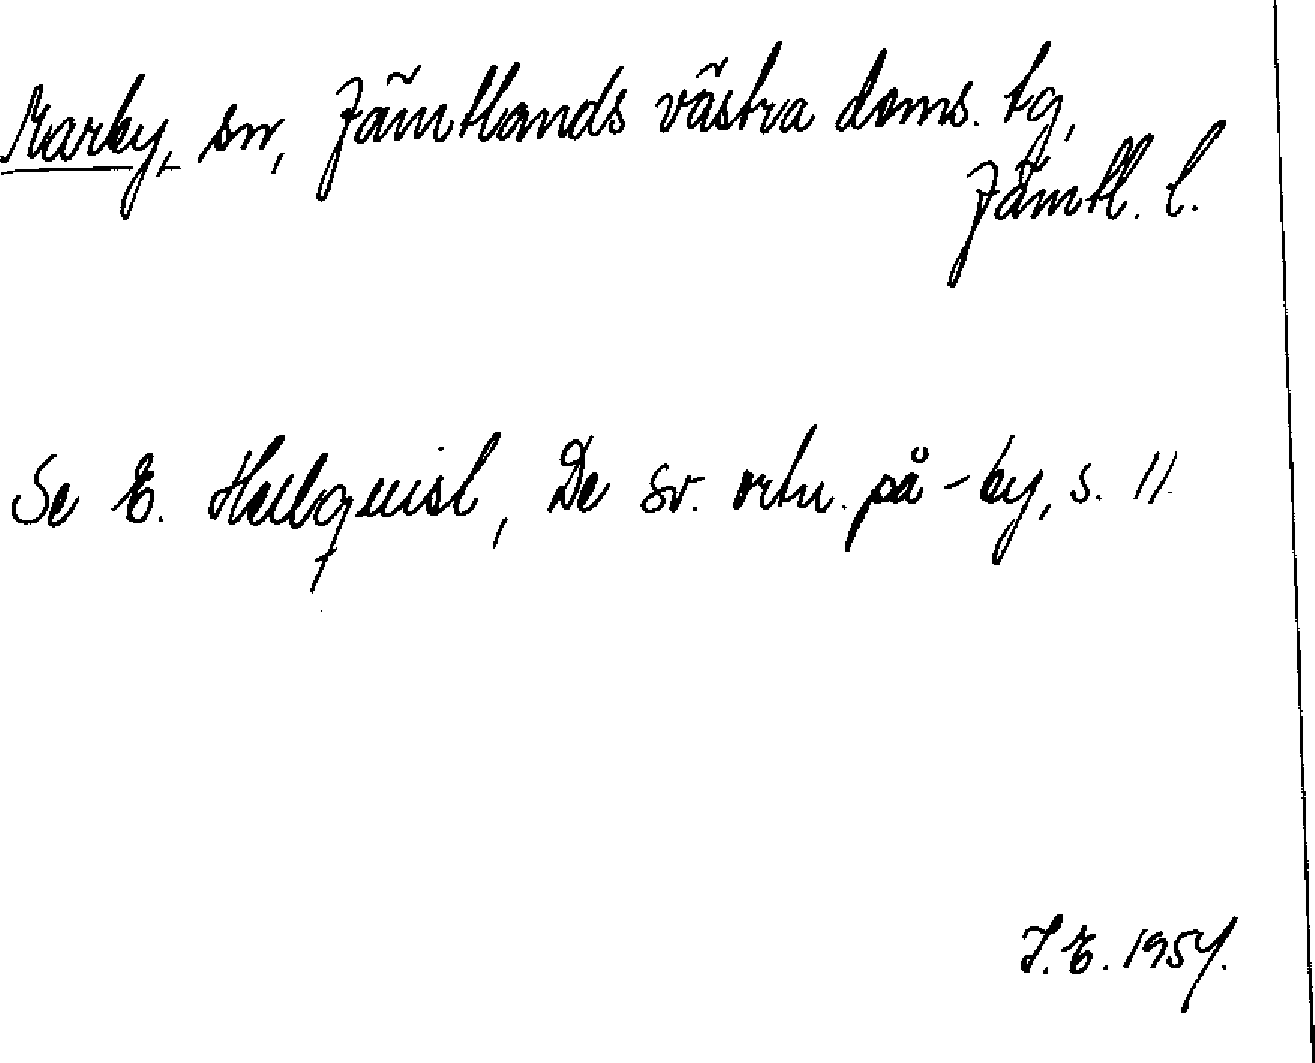 Marby, sn, Jämtlands västra doms. tg,
Jämtl. l.
Se E. Hellquist, De sv. ortn. på -by, s. 11.
I.E. 1954.